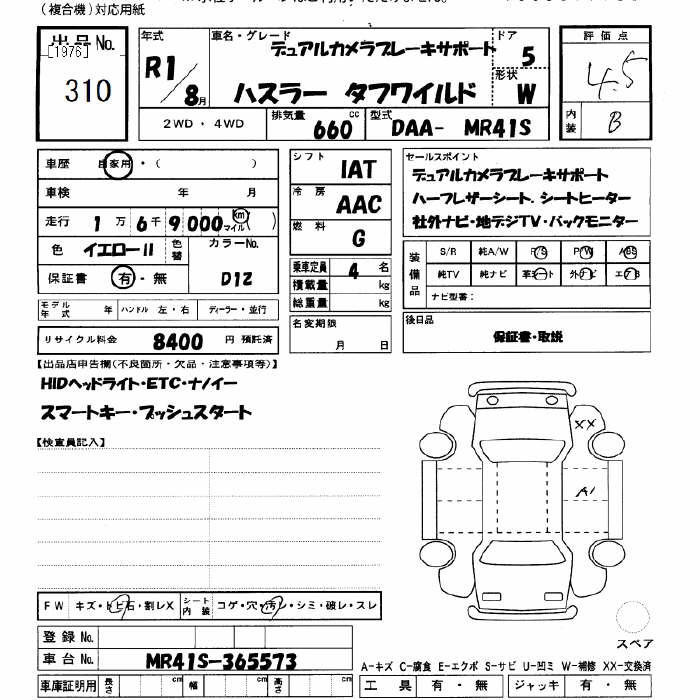 (複合機)対応用紙
出品No. [1976]
310
年式 R1/8月
車名・グレード デュアルカメラブレーキサポート
ハスラー タフワイルド
ドア 5
形状 W
評価点 4.5
内装 B
2WD・4WD 排気量 660 cc 型式 DAA- MR41S
車歴 自家用・( )
車検 年 月
走行 1万 6千 9 000 km マイル( )
色 イエローII 色替 カラーNo. D12
保証書 有・無
モデル年式 年 ハンドル 左・右 ディーラー・並行
リサイクル料金 8400 円 預託済
シフト IAT
冷房 AAC
燃料 G
乗車定員 4 名
積載量 kg
総重量 kg
名変期限 月 日
セールスポイント
デュアルカメラブレーキサポート
ハーフレザーシート.シートヒーター
社外ナビ・地デジTV・バックモニター
装備品 S/R 純A/W P/S P/W ABS
純TV 純ナビ 革シート 外ナビ エアB
ナビ型番:
後日品
保証書・取説
【出品店申告欄(不良箇所・欠品・注意事項等)】
HIDヘッドライト・ETC・ナノイー
スマートキー・プッシュスタート
【検査員記入】
XX
A1
FW キズ・トビ石・割レX シート内装 コゲ・穴・汚レ・シミ・破レ・スレ
登録No.
車台No. MR41S-365573
車庫証明用 長さ cm 幅 cm 高さ cm
スペア
A-キズ C-腐食 E-エクボ S-サビ U-凹ミ W-補修 XX-交換済
工具 有・無 ジャッキ 有・無